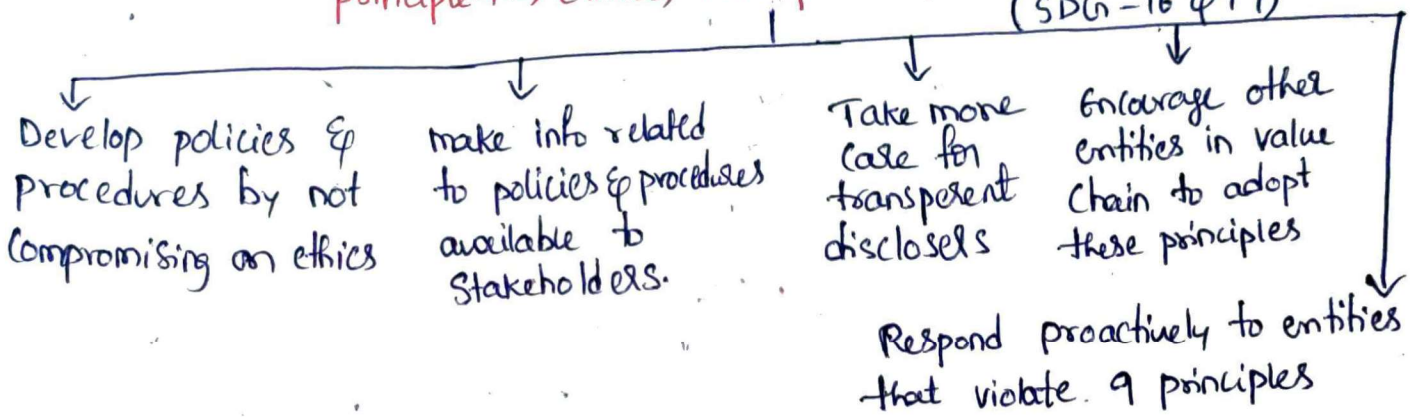 principle
(SDG-16 & 17)
Develop policies &
procedures by not
Compromising on ethics
make info related
to policies & procedures
available to
Stakeholders.
Take more
Case for
transperent
disclosers
Encourage other
entities in value
Chain to adopt
these principles
Respond proactively to entities
that violate. 9 principles